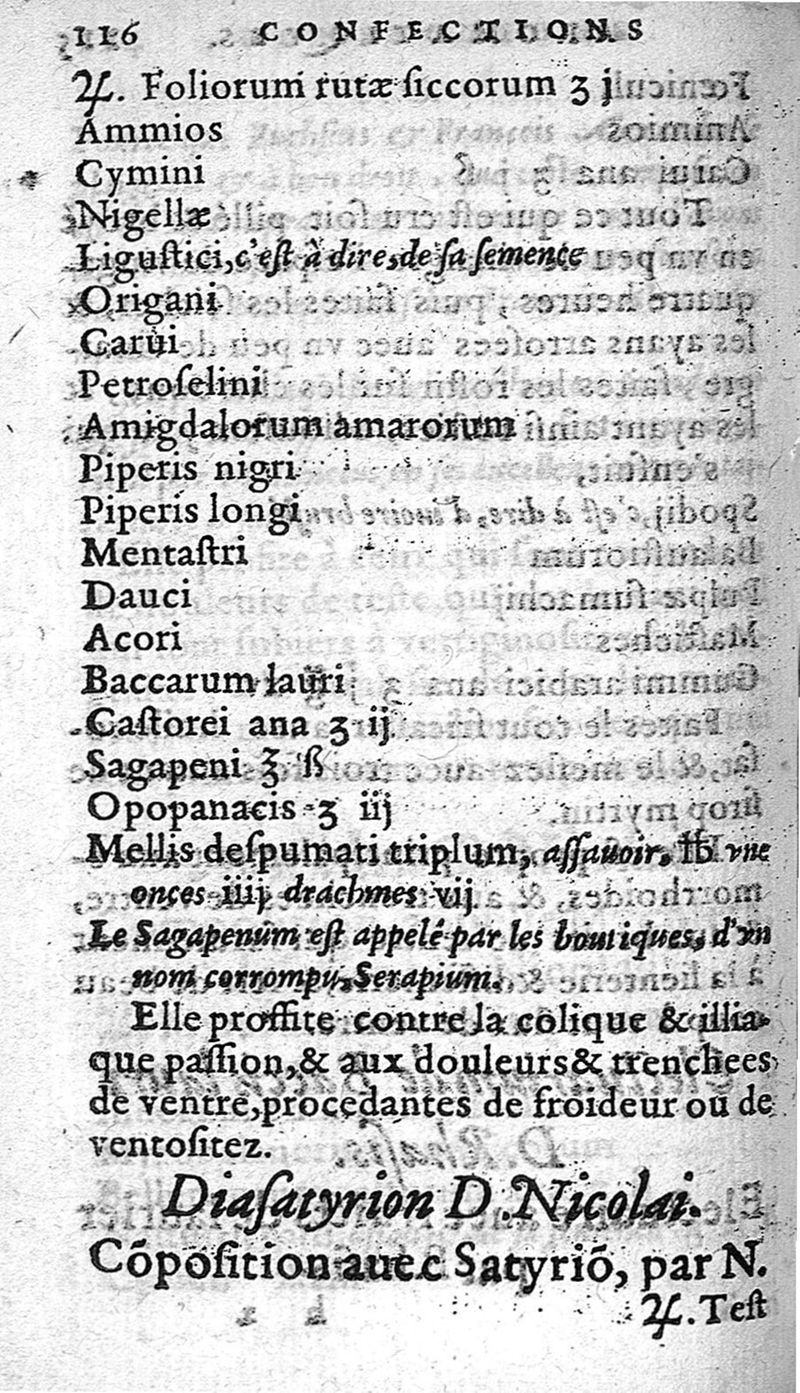 116 CONFECTIONS
♃. Foliorum rutæ ſiccorum ʒ j
Ammios
Cymini
Nigellæ
Liguſtici, c'eſt à dire, de ſa ſemence
Origani
Carui
Petroſelini
Amigdalorum amarorum
Piperis nigri
Piperis longi
Mentaſtri
Dauci
Acori
Baccarum lauri
Caſtorei ana ʒ ij
Sagapeni ℥ ß
Opopanacis ʒ iij
Mellis deſpumati triplum, aſſauoir, ℔ vne
onces iiij drachmes vij
Le Sagapenum eſt appelé par les boutiques, d'vn
nom corrompu, Serapium.
Elle proffite contre la colique & illia-
que paſſion, & aux douleurs & trenchees
de ventre, procedantes de froideur ou de
ventoſitez.
Diaſatyrion D. Nicolai.
Cõpoſition auec Satyriõ, par N.
♃. Teſt